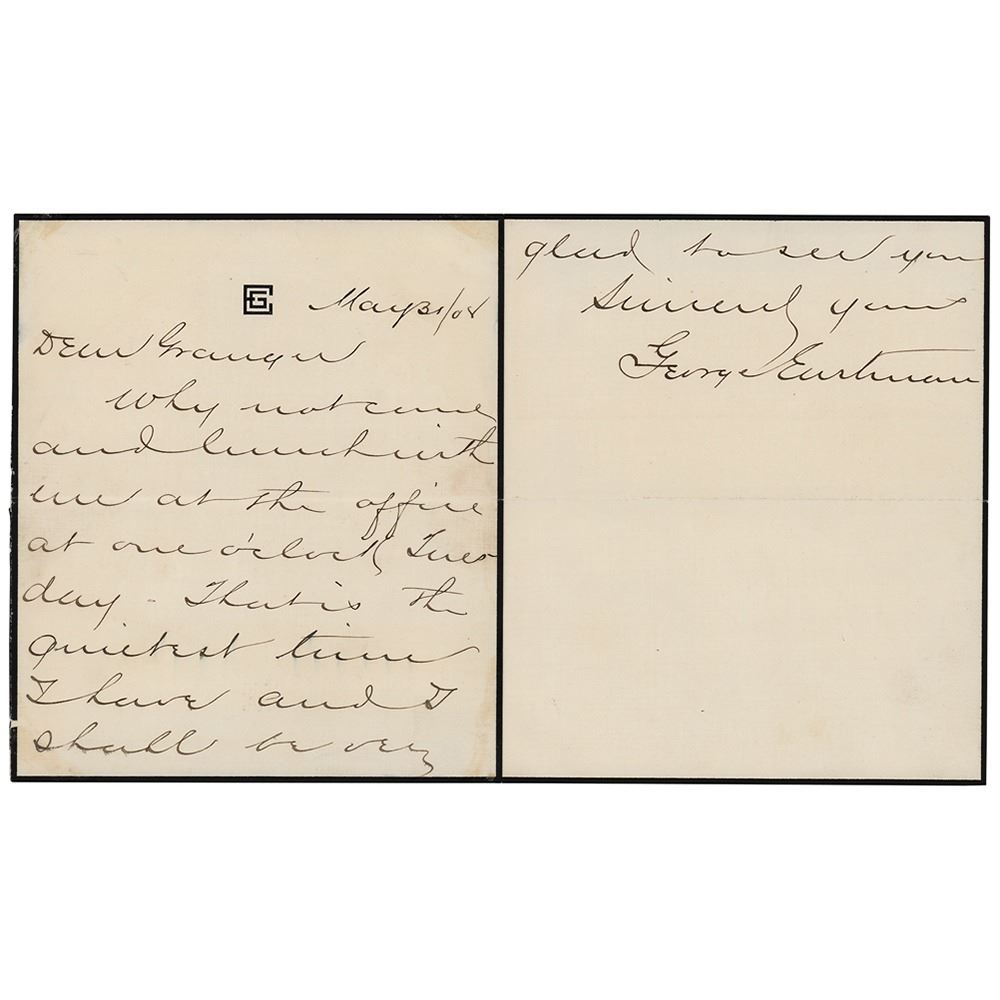 GE May 31/08
Dear Granger
Why not come
and lunch with
me at the office
at one o'clock Tues
day - That is the
quietest time
I have and I
shall be very
glad to see you
Sincerely yours
George Eastman